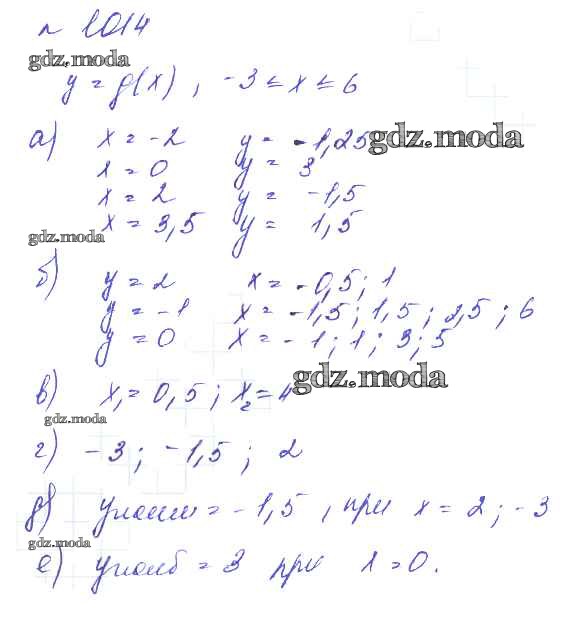 № 1014
gdz.moda
y = g(x), -3 ≤ x ≤ 6
а) x = -2 y = -1,25 gdz.moda
x = 0 y = 3
x = 2 y = -1,5
x = 3,5 y = 1,5
gdz.moda
б) y = 2 x = -0,5; 1
y = -1 x = -1,5; 1,5; 2,5; 6
y = 0 x = -1; 1; 3; 5
gdz.moda
в) x₁ = 0,5; x₂ = 4
gdz.moda
г) -3; -1,5; 2
д) y наим = -1,5, при x = 2; -3
gdz.moda
е) y наиб = 3 при x = 0.